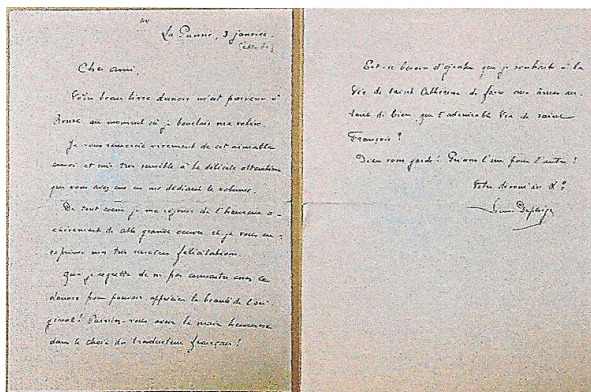 La Panne, 3 janvier.
Cher ami,
Votre beau livre danois m'est parvenu à
Rome au moment où je bouclais ma valise.
Je vous remercie vivement de cet aimable
envoi et suis très sensible à la délicate attention
que vous avez eue en me dédiant le volume.
De tout cœur je me réjouis de l'heureux a-
chèvement de cette grande œuvre et je vous en
exprime mes très sincères félicitations.
Que je regrette de ne pas connaître assez le
danois pour pouvoir apprécier la beauté de l'ori-
ginal! Puissiez-vous avoir la main heureuse
dans le choix du traducteur français!
Est-ce besoin d'ajouter que je souhaite à la
Vie de sainte Catherine de faire aux âmes au-
tant de bien que l'admirable Vie de saint
François?
Dieu vous garde! Prions l'un pour l'autre!
Votre dévoué in X°